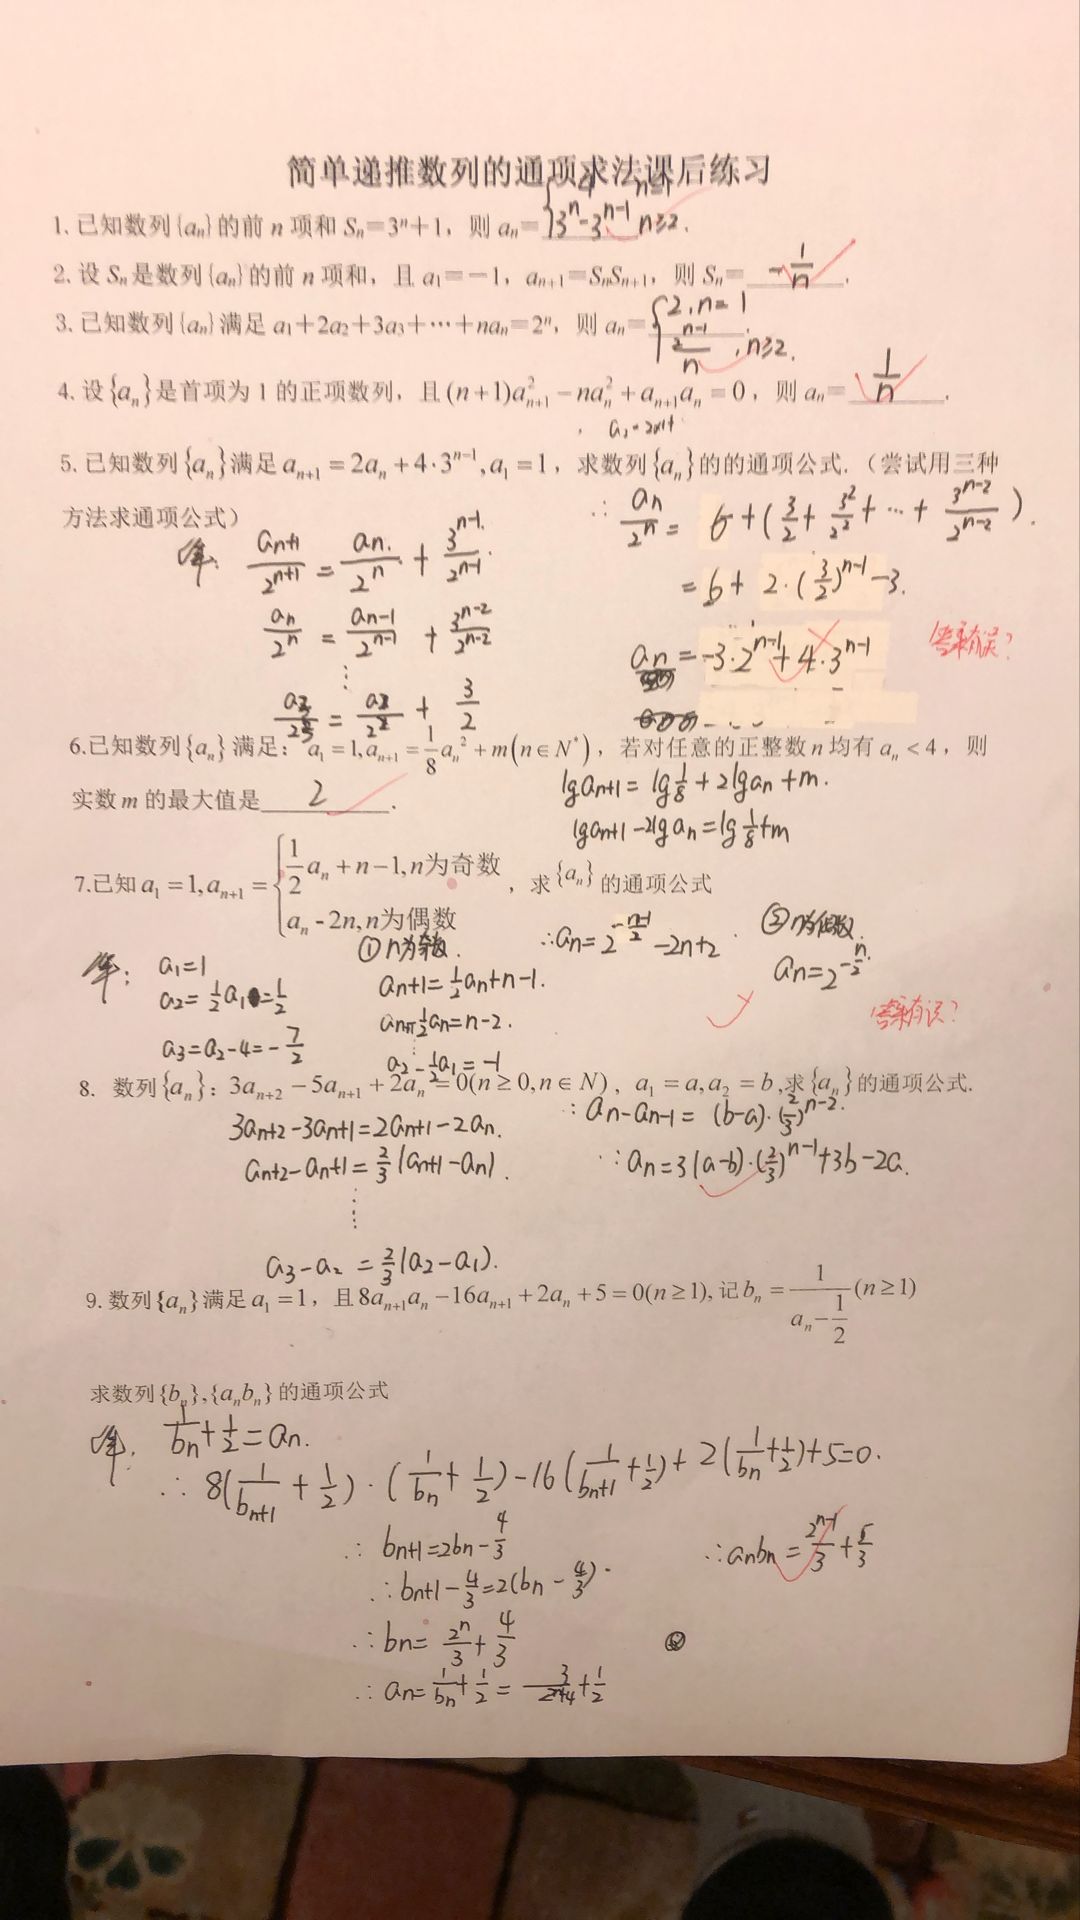 简单递推数列的通项求法课后练习
1.已知数列{aₙ}的前 n 项和 Sₙ=3ⁿ+1，则 aₙ= { 4 n=1
3ⁿ-3ⁿ⁻¹ n≥2.
2.设 Sₙ是数列{aₙ}的前 n 项和，且 a₁=-1，aₙ₊₁=SₙSₙ₊₁，则 Sₙ= -1/n .
3.已知数列{aₙ}满足 a₁+2a₂+3a₃+⋯+naₙ=2ⁿ，则 aₙ= { 2, n=1
2ⁿ⁻¹/n, n≥2.
4.设{aₙ}是首项为 1 的正项数列，且(n+1)aₙ₊₁²-naₙ²+aₙ₊₁aₙ=0，则 aₙ= 1/n .
5.已知数列{aₙ}满足 aₙ₊₁=2aₙ+4·3ⁿ⁻¹,a₁=1，求数列{aₙ}的的通项公式.（尝试用三种
方法求通项公式）
解: aₙ₊₁/2ⁿ⁺¹ = aₙ/2ⁿ + 3ⁿ⁻¹/2ⁿ⁻¹.
aₙ/2ⁿ = aₙ₋₁/2ⁿ⁻¹ + 3ⁿ⁻²/2ⁿ⁻²
⋮
a₃/2³ = a₂/2² + 3/2
∴ aₙ/2ⁿ = 6+(3/2+3²/2²+⋯+3ⁿ⁻²/2ⁿ⁻²).
=6+2·(3/2)ⁿ⁻¹-3.
aₙ=-3·2ⁿ⁻¹+4·3ⁿ⁻¹
答案有误?
6.已知数列{aₙ}满足：a₁=1,aₙ₊₁=1/8aₙ²+m(n∈N*)，若对任意的正整数 n 均有 aₙ<4，则
实数 m 的最大值是 2 .
lgaₙ₊₁=lg1/8+2lgaₙ+m.
lgaₙ₊₁-2lgaₙ=lg1/8+m
7.已知 a₁=1,aₙ₊₁= { 1/2aₙ+n-1,n为奇数
aₙ-2n,n为偶数
，求{aₙ}的通项公式
解: a₁=1
a₂=1/2a₁=1/2
a₃=a₂-4=-7/2
①n为奇数.
aₙ₊₁=1/2aₙ+n-1.
aₙ₊₁-1/2aₙ=n-2.
⋮
a₂-1/2a₁=-1
∴aₙ=2^(-(n-1)/2)-2n+2.
②n为偶数.
aₙ=2^(-n/2).
答案有误?
8. 数列{aₙ}：3aₙ₊₂-5aₙ₊₁+2aₙ=0(n≥0,n∈N)，a₁=a,a₂=b,求{aₙ}的通项公式.
3aₙ₊₂-3aₙ₊₁=2aₙ₊₁-2aₙ.
aₙ₊₂-aₙ₊₁=2/3(aₙ₊₁-aₙ).
⋮
a₃-a₂=2/3(a₂-a₁).
∴aₙ-aₙ₋₁=(b-a)·(2/3)ⁿ⁻².
∴aₙ=3(a-b)·(2/3)ⁿ⁻¹+3b-2a.
9.数列{aₙ}满足 a₁=1，且8aₙ₊₁aₙ-16aₙ₊₁+2aₙ+5=0(n≥1),记 bₙ=1/(aₙ-1/2)(n≥1)
求数列{bₙ},{aₙbₙ}的通项公式
解. 1/bₙ+1/2=aₙ.
∴8(1/bₙ₊₁+1/2)·(1/bₙ+1/2)-16(1/bₙ₊₁+1/2)+2(1/bₙ+1/2)+5=0.
∴bₙ₊₁=2bₙ-4/3
∴bₙ₊₁-4/3=2(bₙ-4/3).
∴bₙ=2ⁿ/3+4/3
∴aₙ=1/bₙ+1/2=3/(2ⁿ+4)+1/2
∴aₙbₙ=2ⁿ⁻¹/3+5/3